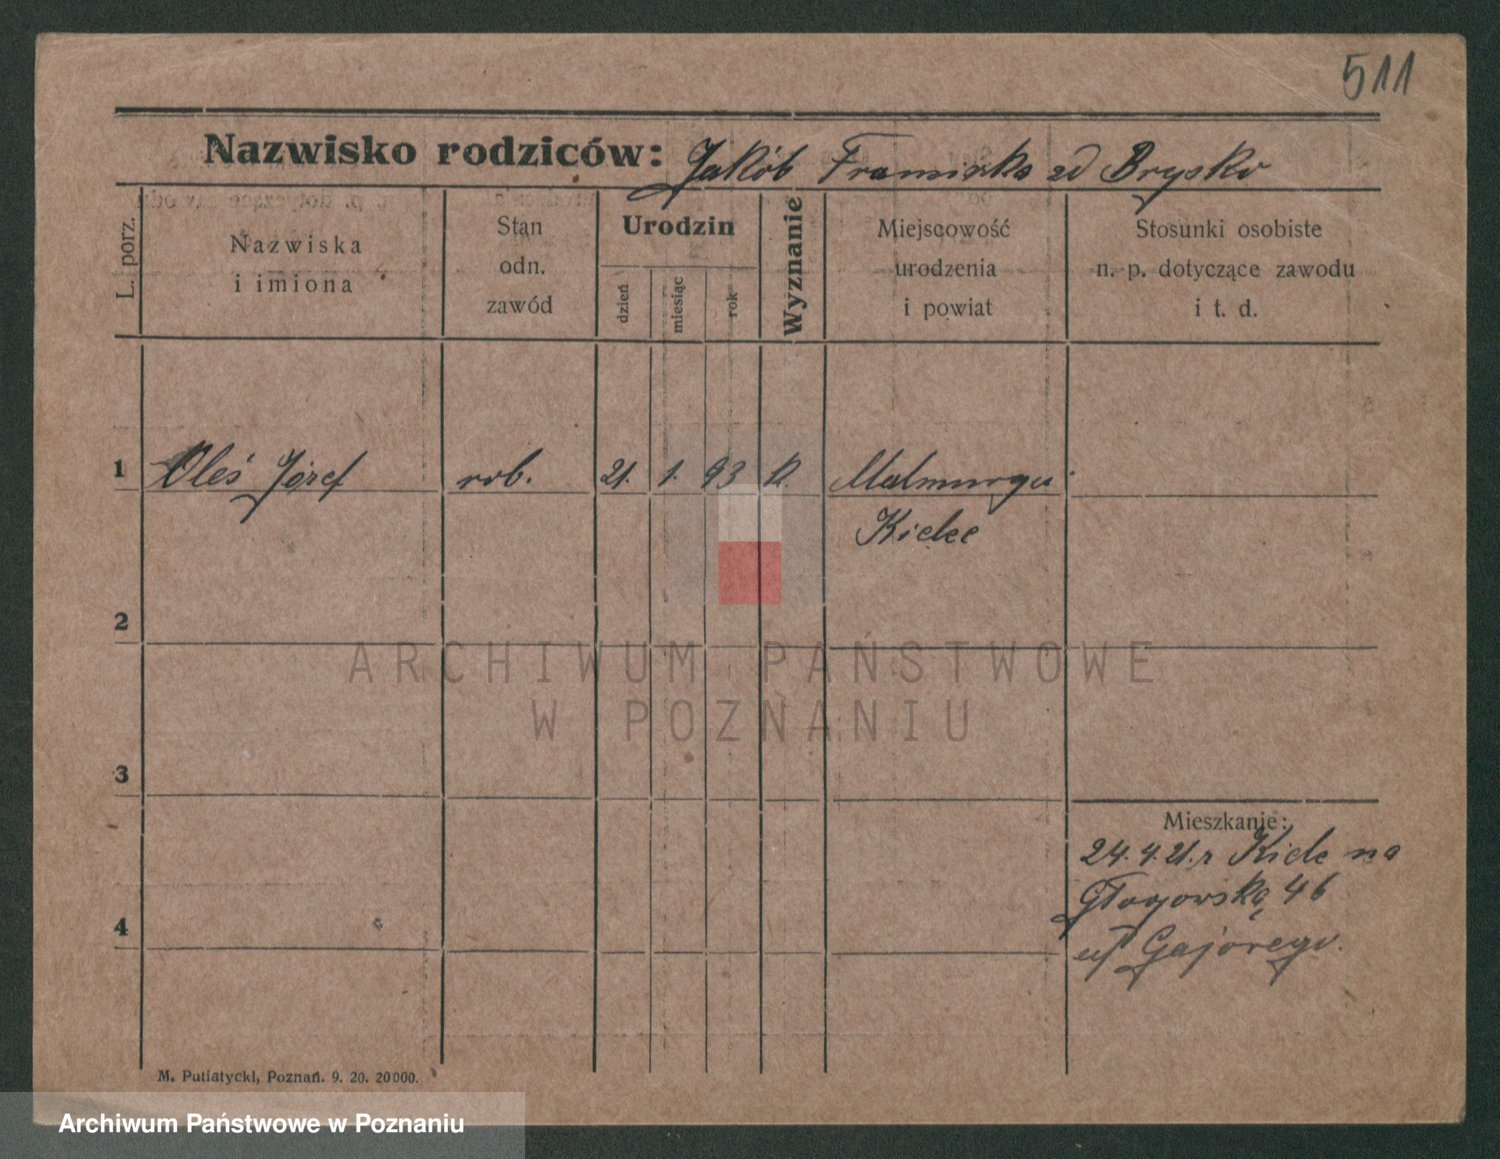 511
Nazwisko rodziców: Jakób Franciska zd Brysko
L. porz.
Nazwiska
i imiona
Stan
odn.
zawód
Urodzin
dzień
miesiąc
rok
Wyznanie
Miejscowość
urodzenia
i powiat
Stosunki osobiste
n. p. dotyczące zawodu
i t. d.
1 Oleś Józef rob. 21. 1. 93 k.
Kielce
2
ARCHIWUM PAŃSTWOWE
W POZNANIU
3
Mieszkanie:
24.4.21.r Kielc na
46
4
M. Putiatycki, Poznań. 9. 20. 20000.
Archiwum Państwowe w Poznaniu